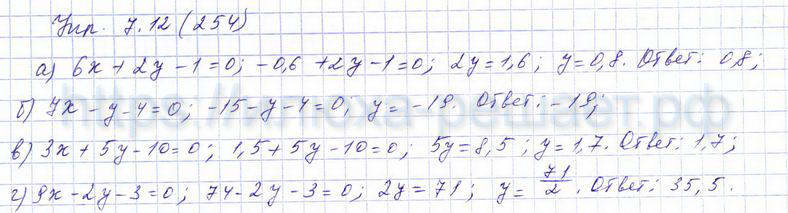 Упр. 7.12 (254)
а) 6x + 2y - 1 = 0; -0,6 + 2y - 1 = 0; 2y = 1,6; y = 0,8. Ответ: 0,8;
б) 7x - y - 4 = 0; -15 - y - 4 = 0; y = -19. Ответ: -19;
в) 3x + 5y - 10 = 0; 1,5 + 5y - 10 = 0; 5y = 8,5; y = 1,7. Ответ: 1,7;
г) 9x - 2y - 3 = 0; 74 - 2y - 3 = 0; 2y = 71; y = 71/2. Ответ: 35,5.